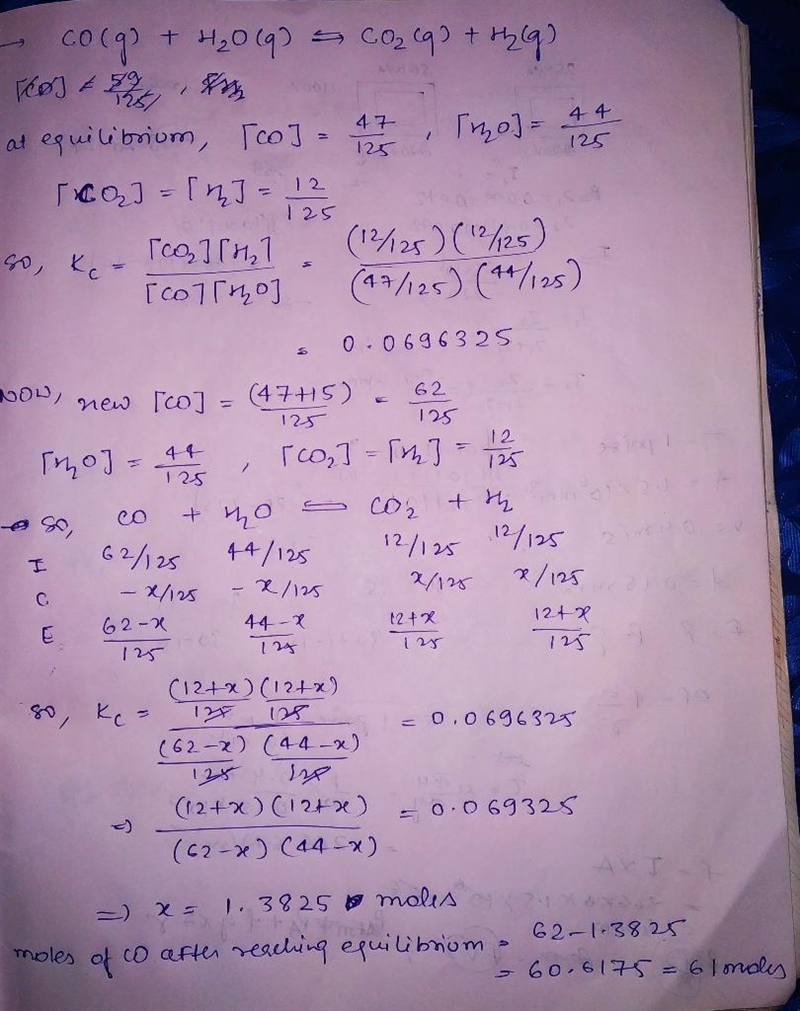 → CO(g) + H₂O(g) ⇌ CO₂(g) + H₂(g)
[CO] = 59/125,
at equilibrium, [CO] = 47/125, [H₂O] = 44/125
[CO₂] = [H₂] = 12/125
so, Kc = [CO₂][H₂]/[CO][H₂O] = (12/125)(12/125)/(47/125)(44/125)
= 0.0696325
NOW, new [CO] = (47+15)/125 = 62/125
[H₂O] = 44/125, [CO₂] = [H₂] = 12/125
so, CO + H₂O ⇌ CO₂ + H₂
I 62/125 44/125 12/125 12/125
C -x/125 -x/125 x/125 x/125
E 62-x/125 44-x/125 12+x/125 12+x/125
so, Kc = (12+x)/125 (12+x)/125 / (62-x)/125 (44-x)/125 = 0.0696325
⇒ (12+x)(12+x)/(62-x)(44-x) = 0.069325
⇒ x = 1.3825 moles
moles of CO after reaching equilibrium = 62-1.3825
= 60.6175 = 61 moles